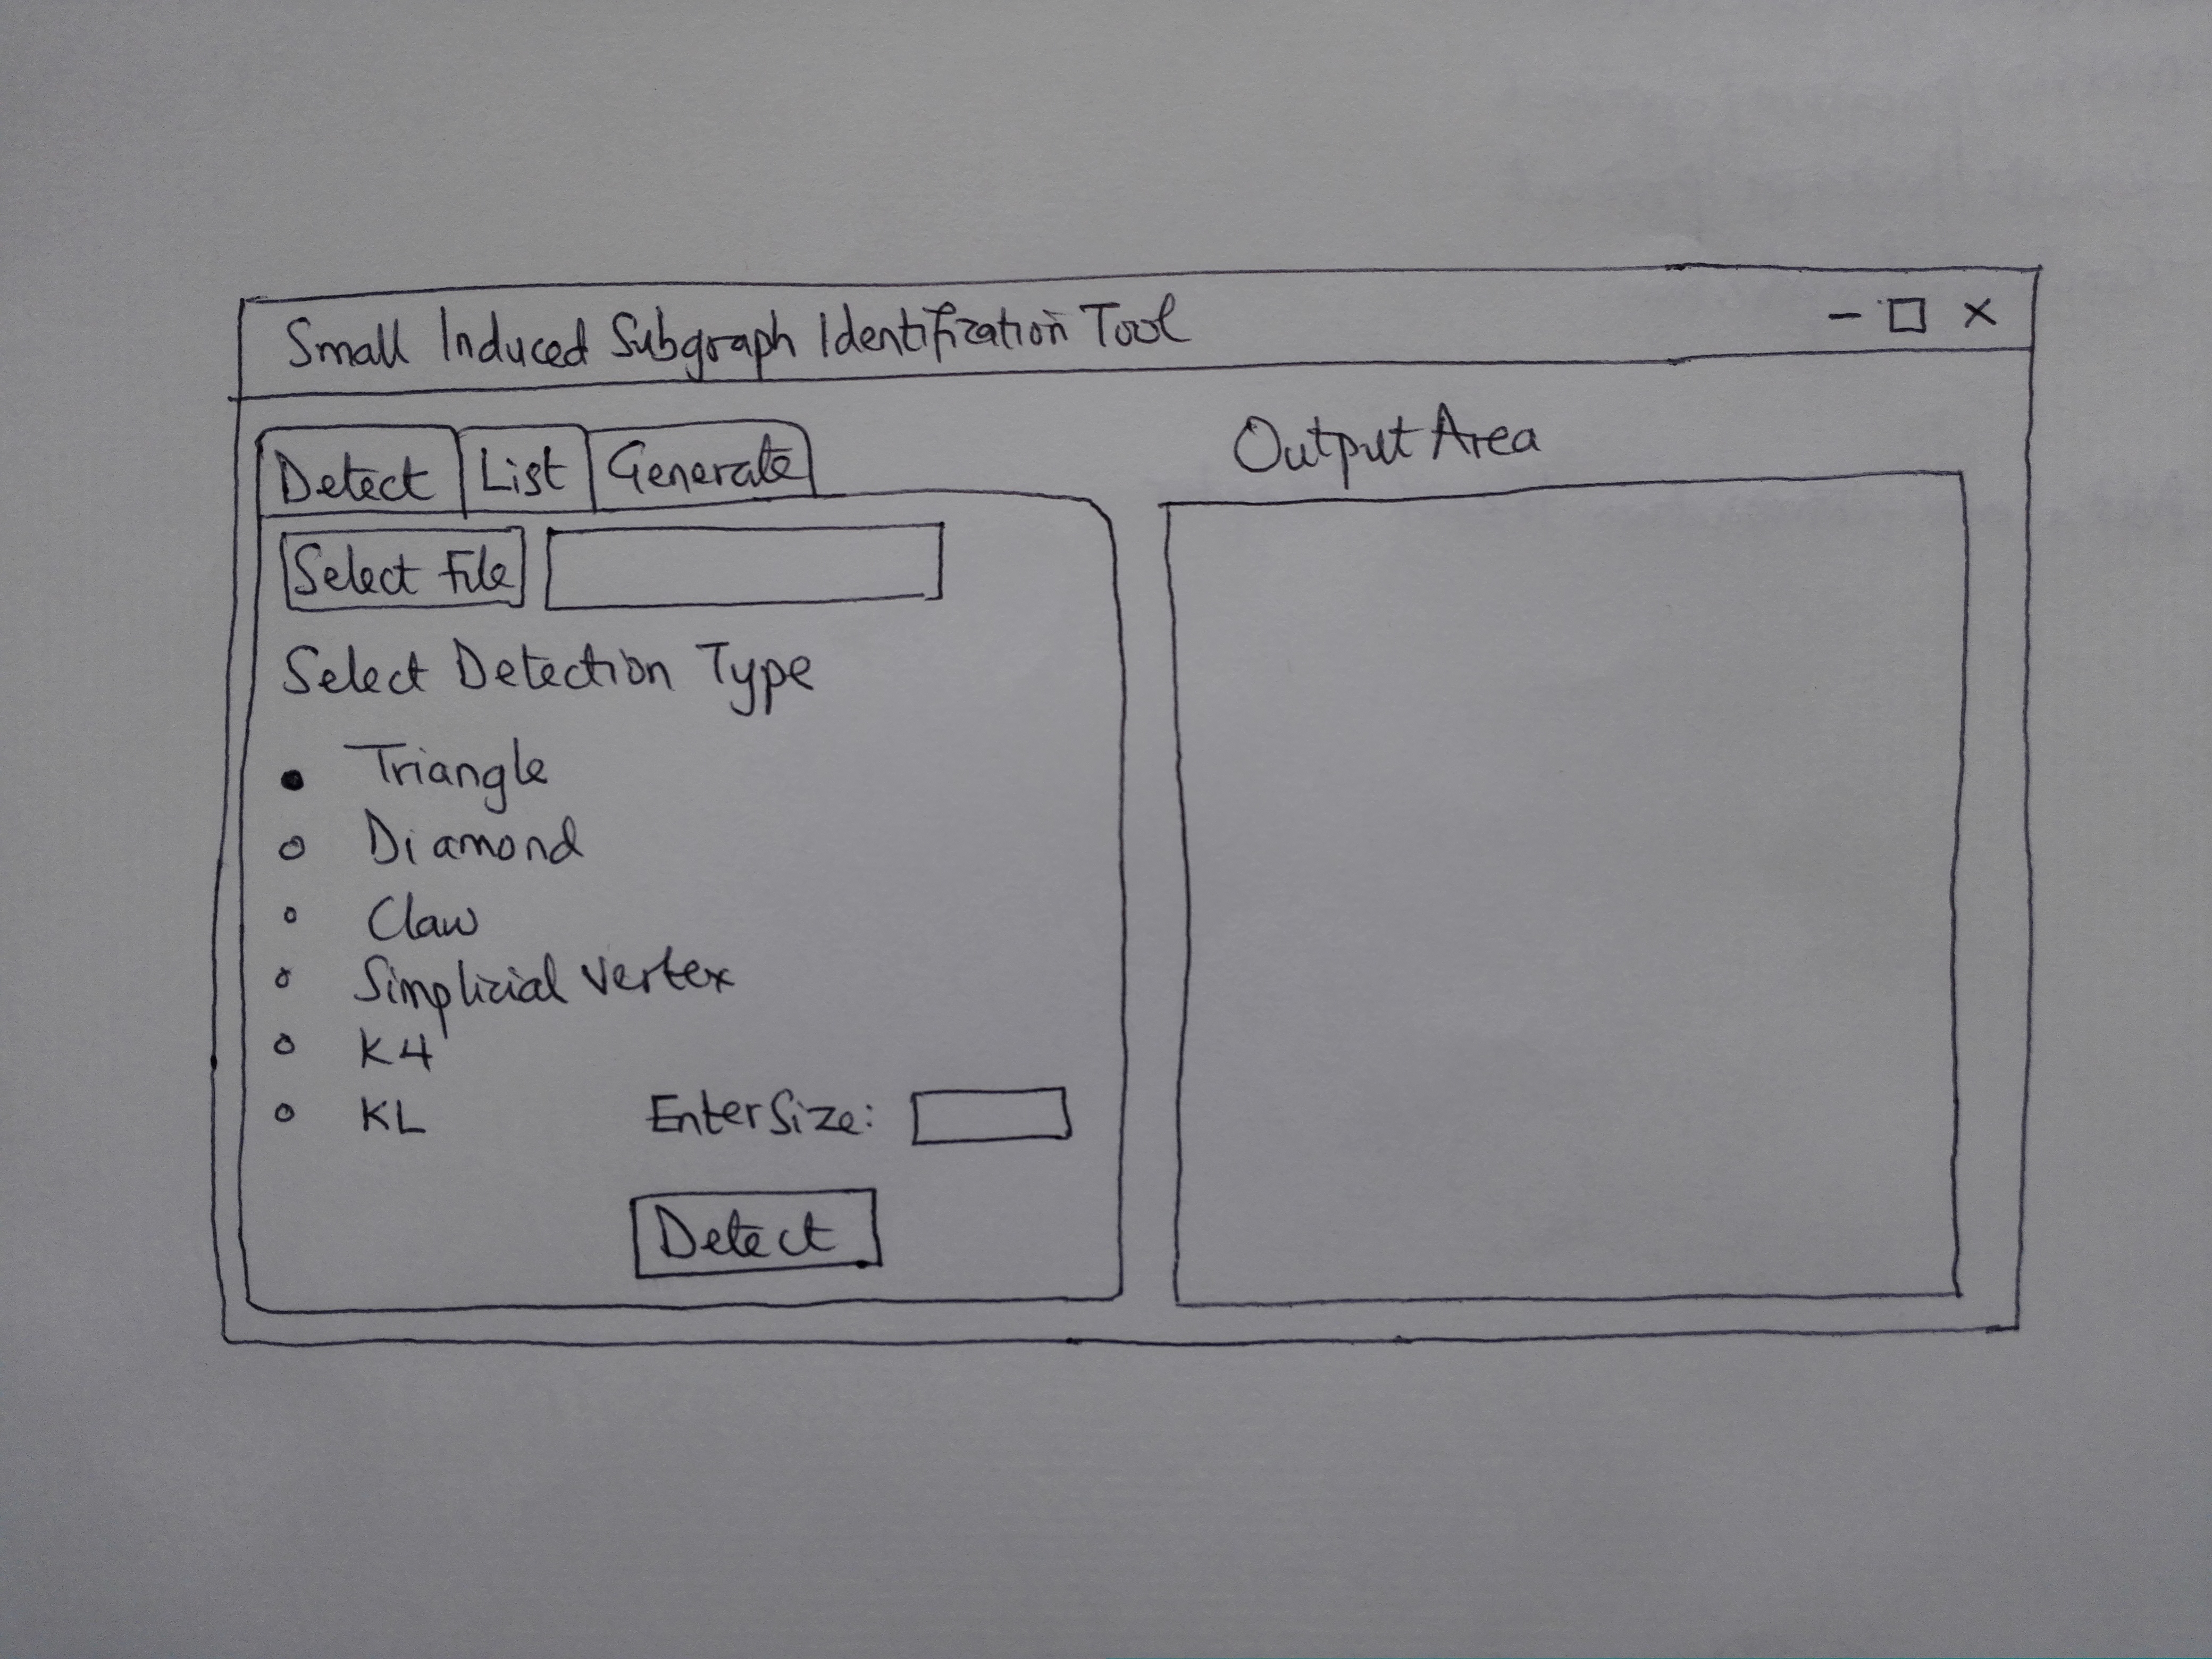 Small Induced Subgraph Identification Tool
Detect List Generate
Select File
Select Detection Type
Triangle
Diamond
Claw
Simplicial Vertex
K4
KL Enter Size:
Detect
Output Area